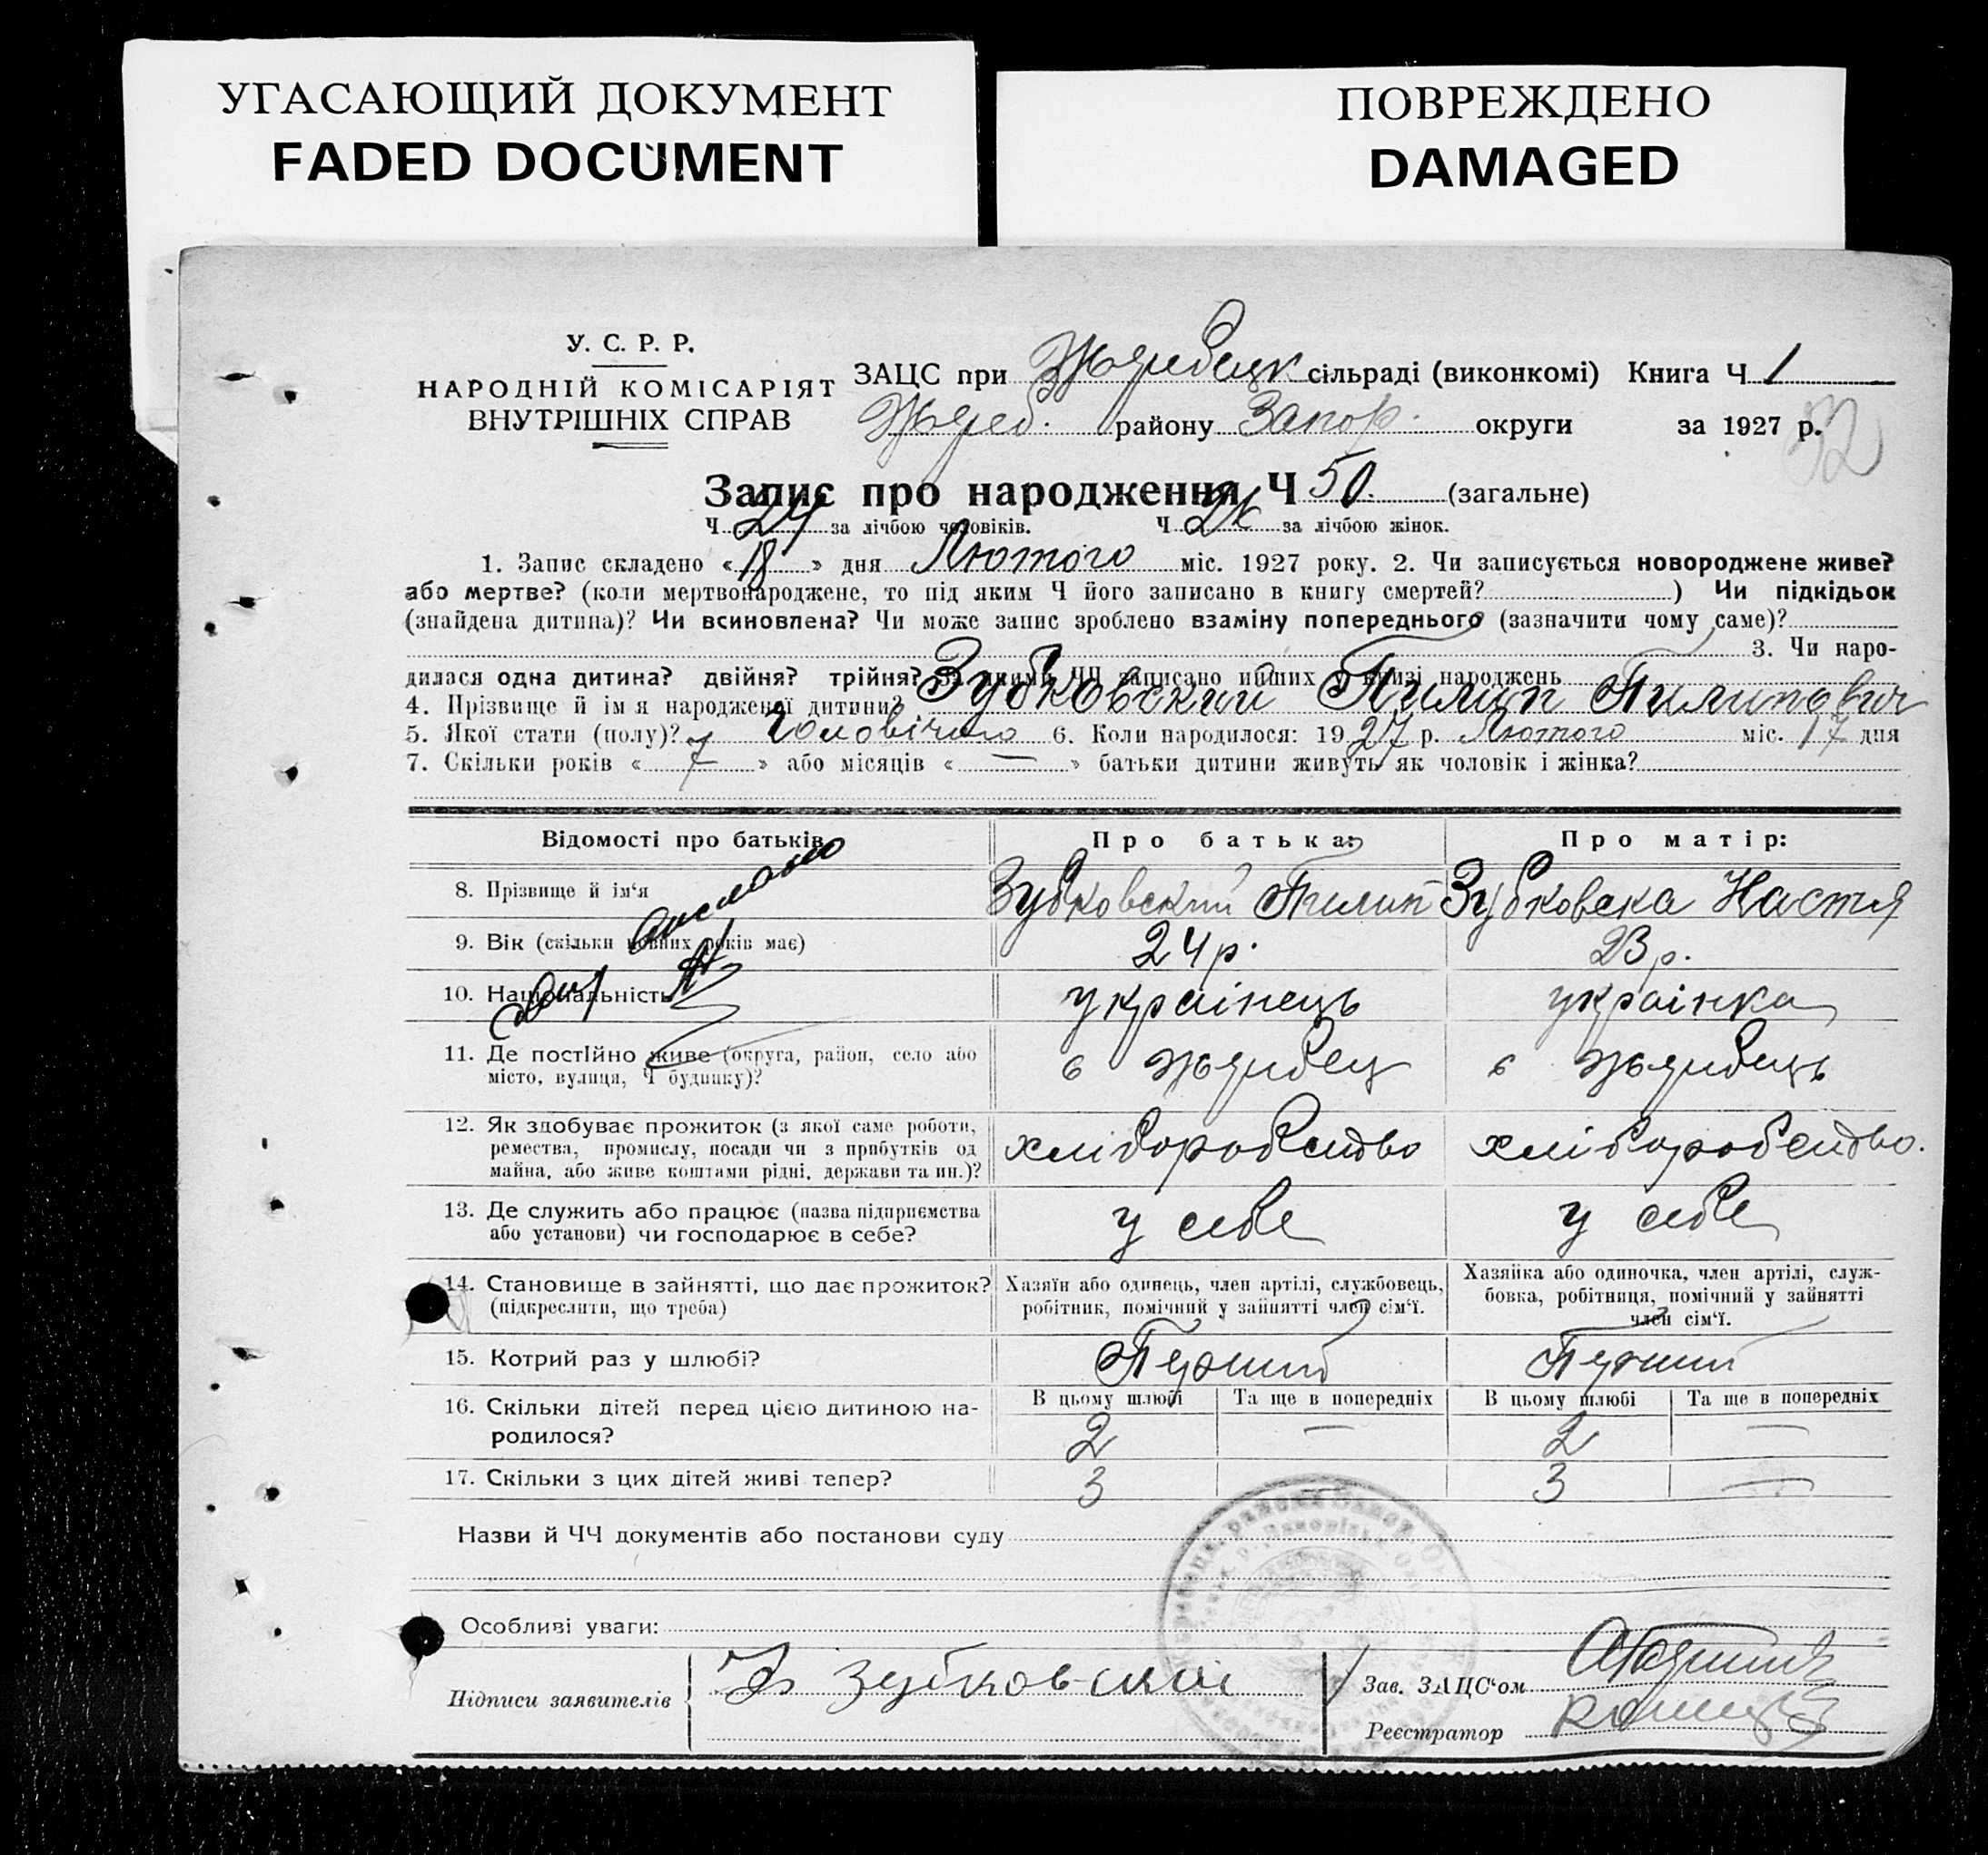 УГАСАЮЩИЙ ДОКУМЕНТ
FADED DOCUMENT
ПОВРЕЖДЕНО
DAMAGED
У. С. Р. Р.
НАРОДНІЙ КОМІСАРІЯТ
ВНУТРІШНІХ СПРАВ
ЗАЦС при Жеребецк сільраді (виконкомі) Книга Ч 1
Жереб. району Запор. округи за 1927 р.
32
Запис про народження Ч 50. (загальне)
Ч 24 за лічбою чоловіків. Ч за лічбою жінок.
1. Запис складено « 18 » дня Лютого міс. 1927 року. 2. Чи записується новороджене живе?
або мертве? (коли мертвонароджене, то під яким Ч його записано в книгу смертей? ) Чи підкідьок
(знайдена дитина)? Чи всиновлена? Чи може запис зроблено взаміну попереднього (зазначити чому саме)?
3. Чи наро-
дилася одна дитина? двійня? трійня? За якими ЧЧ записано инших у книзі народжень
4. Прізвище й ім'я народженої дитини? Зубковский Пилип Пилипович
5. Якої стати (полу)? Чоловічого 6. Коли народилося: 1927 р. Лютого міс. 17 дня
7. Скільки років « 7 » або місяців « — » батьки дитини живуть як чоловік і жінка?
Відомості про батьків Про батька: Про матір:
8. Прізвище й ім'я Зубковский Пилип Зубковска Настя
9. Вік (скільки повних років має) 24 р. 23 р.
10. Національність українець українка
11. Де постійно живе (округа, район, село або
місто, вулиця, Ч будинку)? с Жеребец с Жеребець
12. Як здобуває прожиток (з якої саме роботи,
ремества, промислу, посади чи з прибутків од
майна, або живе коштами рідні, держави та ин.)? хлиборобство хліборобство.
13. Де служить або працює (назва підприємства
або установи) чи господарює в себе? у себе у себе
14. Становище в зайнятті, що дає прожиток?
(підкреслити, що треба)
Хазяїн або одинець, член артілі, службовець,
робітник, помічний у зайнятті член сім'ї.
Хазяйка або одиночка, член артілі, служ-
бовка, робітниця, помічний у зайнятті
член сім'ї.
15. Котрий раз у шлюбі? Перший Перший
16. Скільки дітей перед цією дитиною на-
родилося?
В цьому шлюбі Та ще в попередніх В цьому шлюбі Та ще в попередніх
2 — 2 —
17. Скільки з цих дітей живі тепер? 3 3 —
Назви й ЧЧ документів або постанови суду
Особливі уваги:
Підписи заявителів Зубковский
Зав. ЗАЦС'ом
Реєстратор